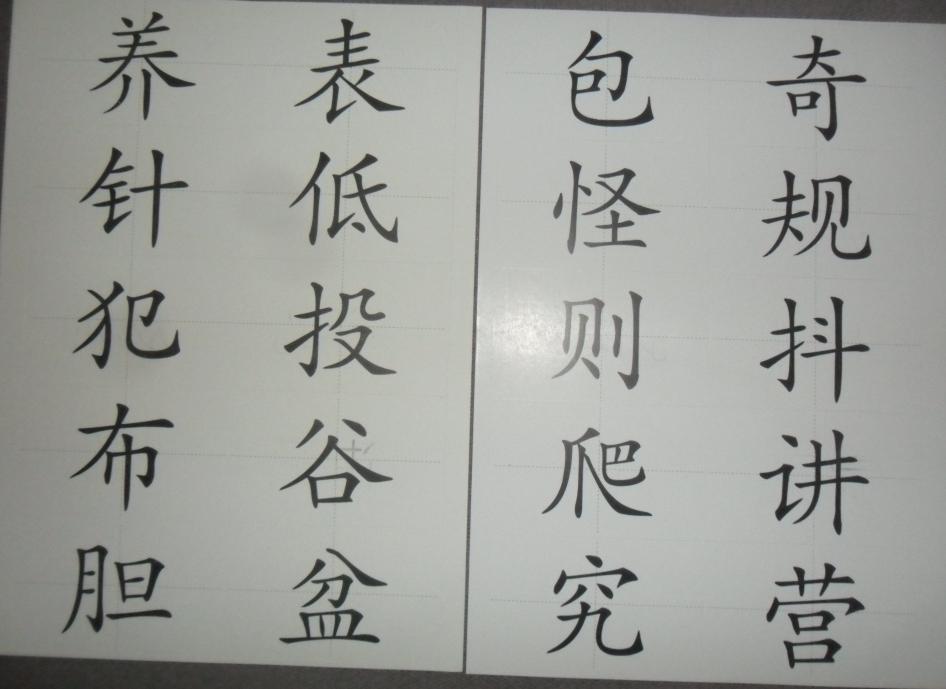 养 表 包 奇
针 低 怪 规
犯 投 则 抖
布 谷 爬 讲
胆 盆 究 营